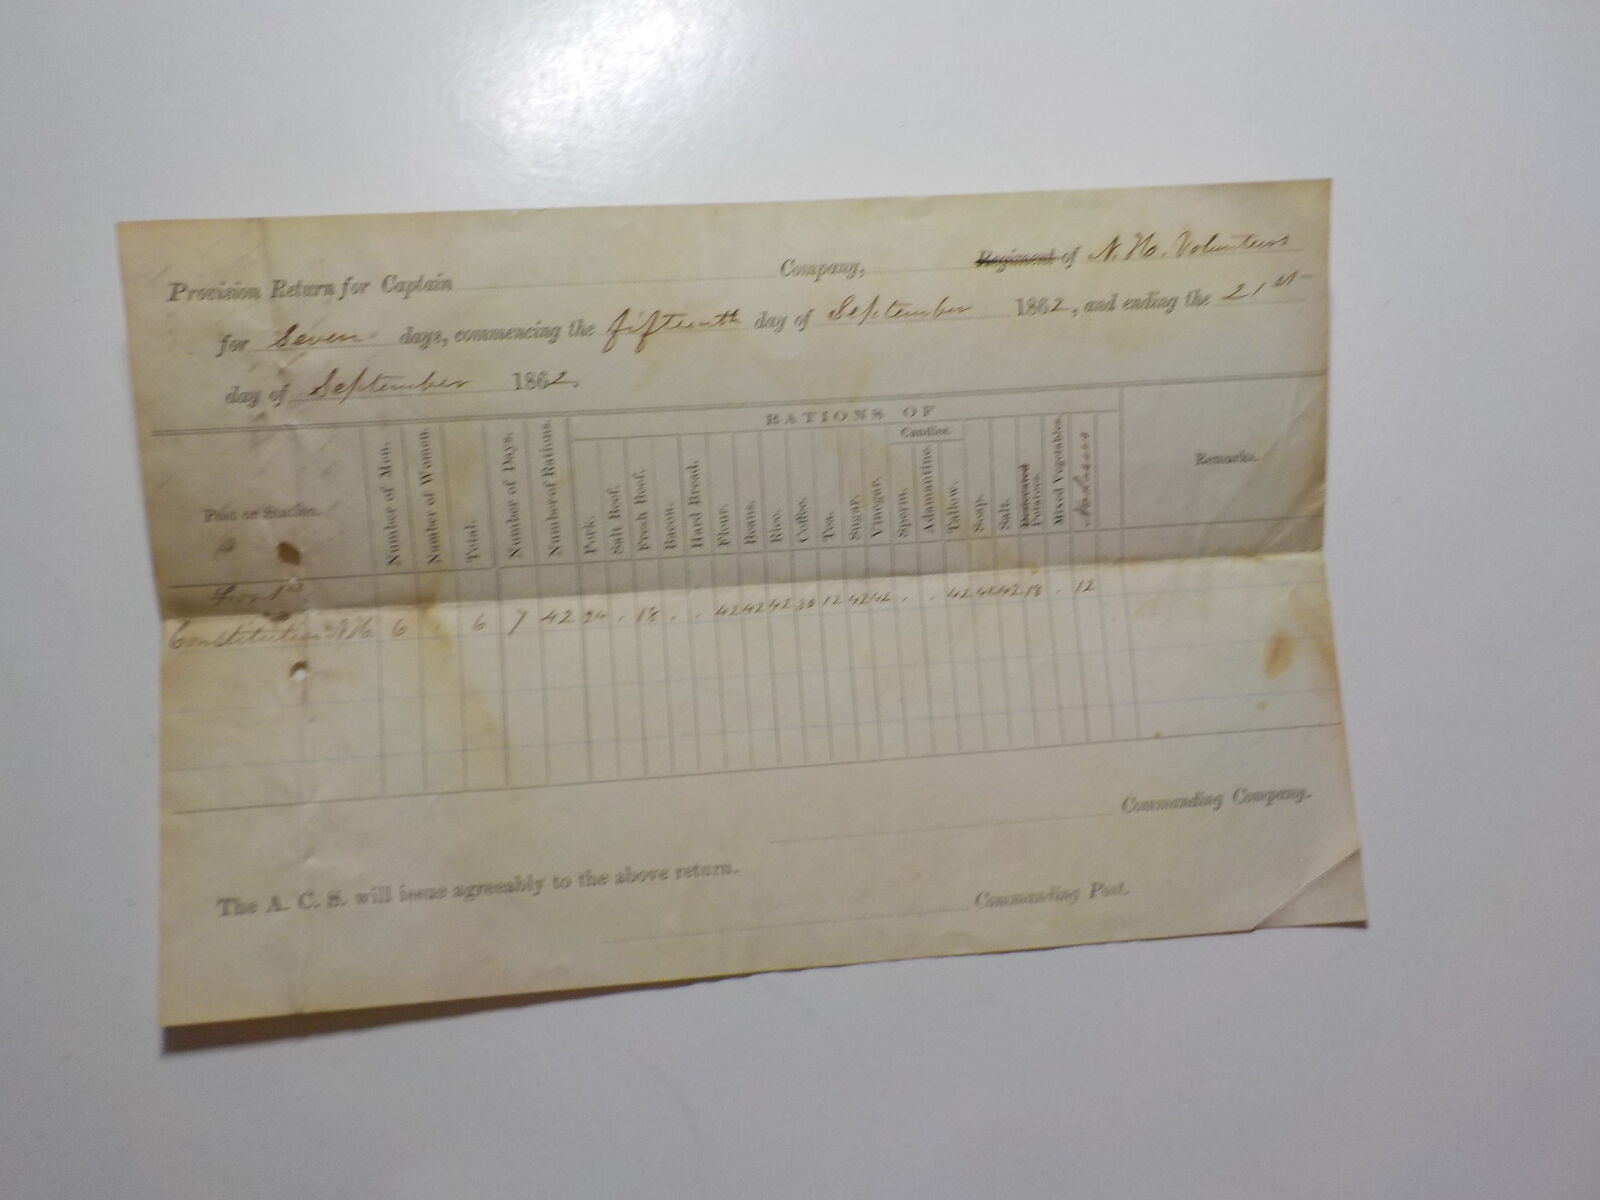 Provision Return for Captain Company, Regiment of N. H. Volunteers
for Seven days, commencing the fifteenth day of September 1862, and ending the 21st
day of September 1862.
RATIONS OF
Candles.
Post or Station. Number of Men. Number of Women. Total. Number of Days. Number of Rations. Pork. Salt Beef. Fresh Beef. Bacon. Hard Bread. Flour. Beans. Rice. Coffee. Tea. Sugar. Vinegar. Sperm. Adamantine. Tallow. Soap. Salt. Desiccated Potatoes. Mixed Vegetables. Molasses Remarks.
Fort
Constitution N.H. 6 . 6 7 42 24 . 18 . . 42 42 42 30 12 42 42 . . 42 42 42 18 . 12
Commanding Company.
The A. C. S. will issue agreeably to the above return.
Commanding Post.